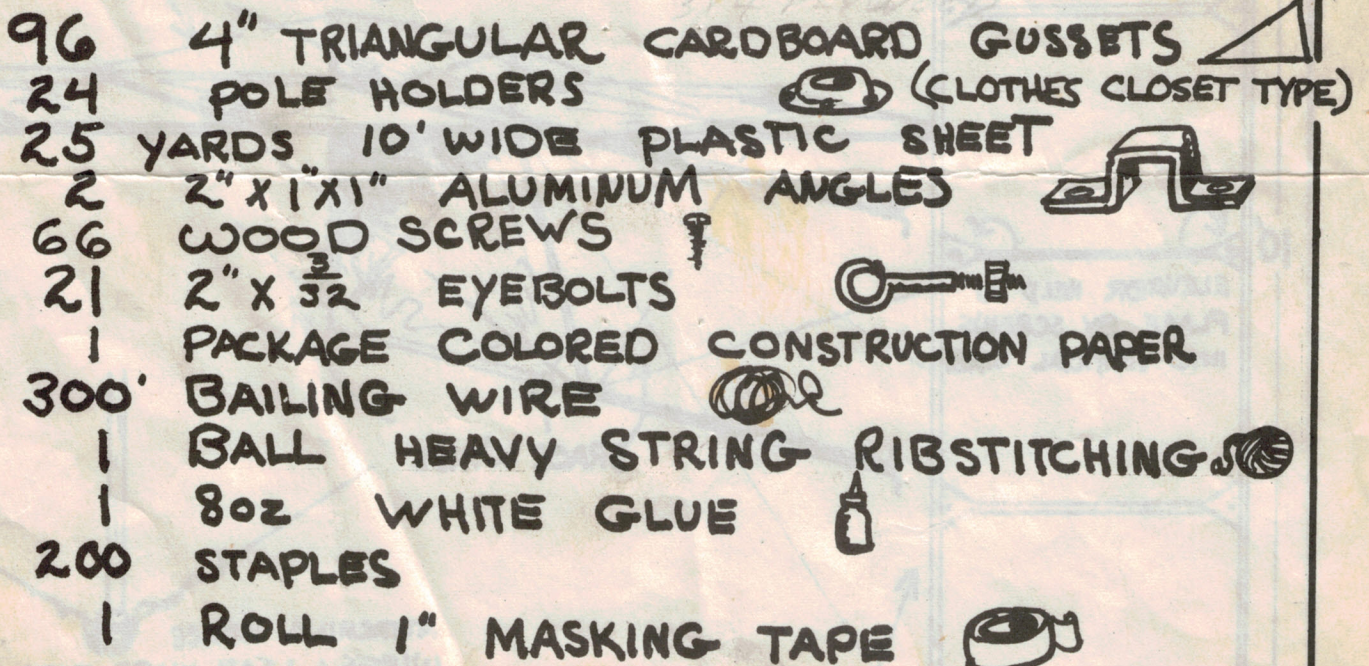 96 4" TRIANGULAR CARDBOARD GUSSETS
24 POLE HOLDERS (CLOTHES CLOSET TYPE)
25 YARDS 10' WIDE PLASTIC SHEET
2 2" X 1" X 1" ALUMINUM ANGLES
66 WOOD SCREWS
21 2" X 3/32 EYEBOLTS
1 PACKAGE COLORED CONSTRUCTION PAPER
300' BAILING WIRE
1 BALL HEAVY STRING RIBSTITCHING
1 8oz WHITE GLUE
200 STAPLES
1 ROLL 1" MASKING TAPE